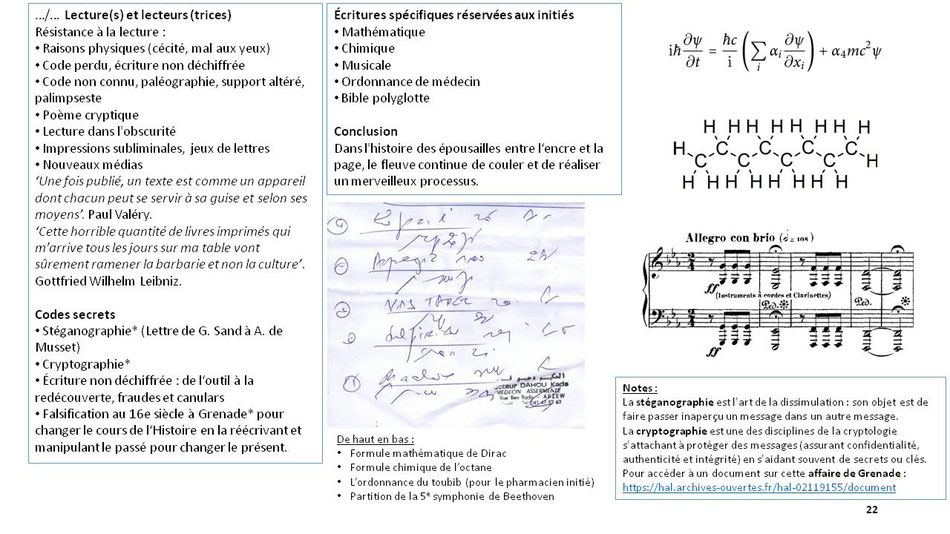 .../... Lecture(s) et lecteurs (trices)
Résistance à la lecture :
• Raisons physiques (cécité, mal aux yeux)
• Code perdu, écriture non déchiffrée
• Code non connu, paléographie, support altéré,
palimpseste
• Poème cryptique
• Lecture dans l'obscurité
• Impressions subliminales, jeux de lettres
• Nouveaux médias
'Une fois publié, un texte est comme un appareil
dont chacun peut se servir à sa guise et selon ses
moyens'. Paul Valéry.
'Cette horrible quantité de livres imprimés qui
m'arrive tous les jours sur ma table vont
sûrement ramener la barbarie et non la culture'.
Gottfried Wilhelm Leibniz.
Codes secrets
• Stéganographie* (Lettre de G. Sand à A. de
Musset)
• Cryptographie*
• Écriture non déchiffrée : de l'outil à la
redécouverte, fraudes et canulars
• Falsification au 16e siècle à Grenade* pour
changer le cours de l'Histoire en la réécrivant et
manipulant le passé pour changer le présent.
Écritures spécifiques réservées aux initiés
• Mathématique
• Chimique
• Musicale
• Ordonnance de médecin
• Bible polyglotte
Conclusion
Dans l'histoire des épousailles entre l'encre et la
page, le fleuve continue de couler et de réaliser
un merveilleux processus.
Docteur DAHOU Kada
MEDECIN ASSERMENTE
ARZEW
De haut en bas :
• Formule mathématique de Dirac
• Formule chimique de l'octane
• L'ordonnance du toubib (pour le pharmacien initié)
• Partition de la 5e symphonie de Beethoven
iℏ ∂ψ/∂t = ℏc/i (∑i αi ∂ψ/∂xi) + α4mc²ψ
H H H H H H H H
H C C C C C C C C H
H H H H H H H H
Allegro con brio (𝅗𝅥 = 108)
ff
(Instruments à cordes et Clarinettes)
Ped. * Ped. *
ff
Notes :
La stéganographie est l'art de la dissimulation : son objet est de
faire passer inaperçu un message dans un autre message.
La cryptographie est une des disciplines de la cryptologie
s'attachant à protéger des messages (assurant confidentialité,
authenticité et intégrité) en s'aidant souvent de secrets ou clés.
Pour accéder à un document sur cette affaire de Grenade :
https://hal.archives-ouvertes.fr/hal-02119155/document
22